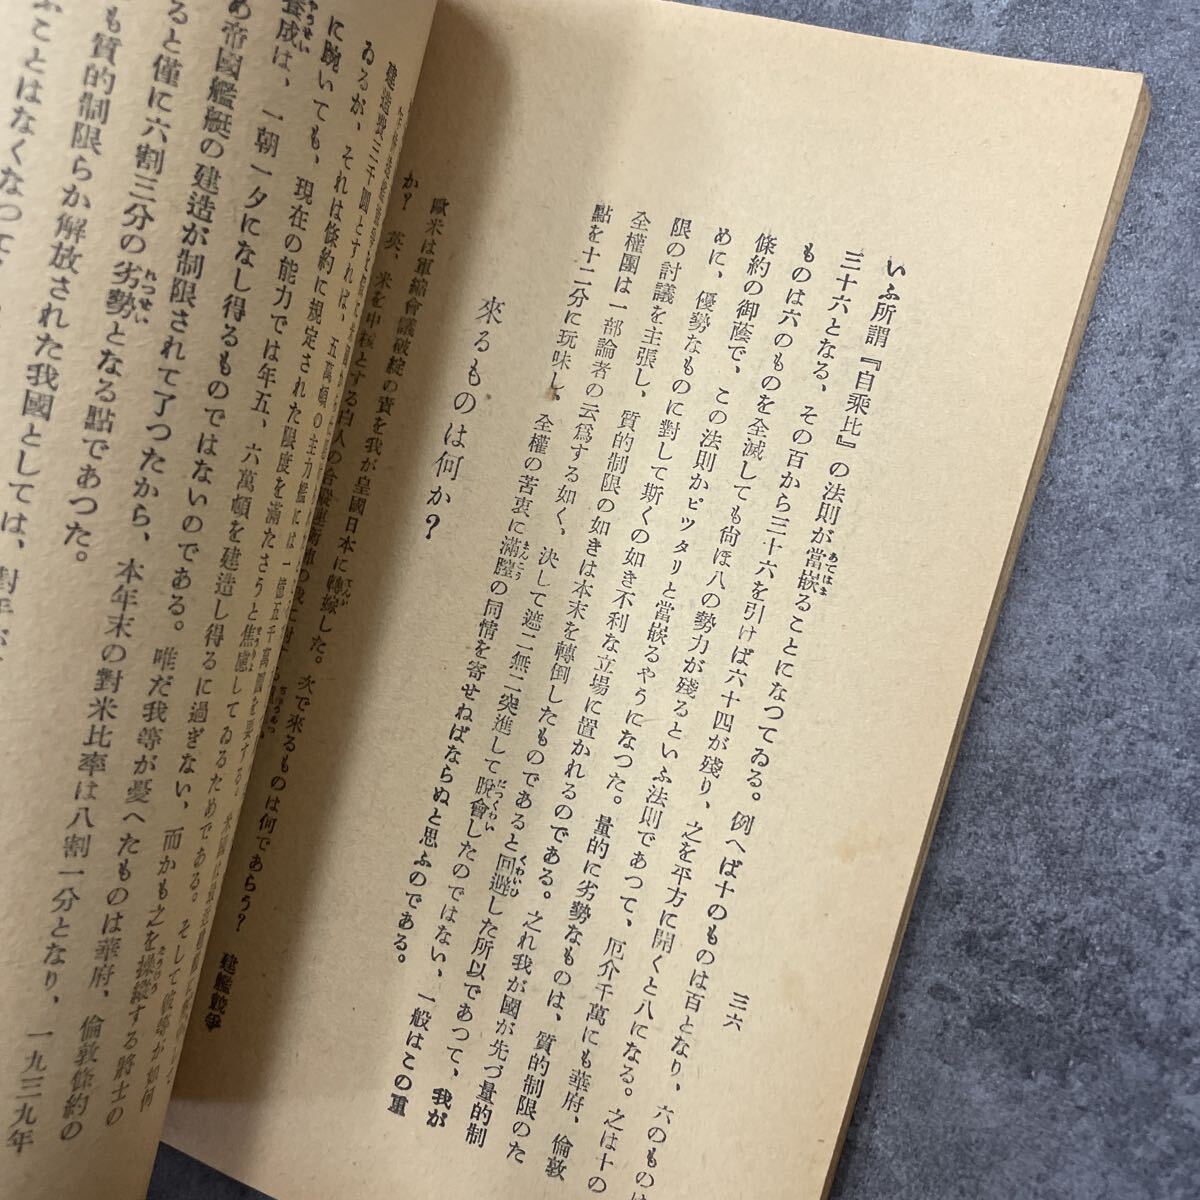 三六
いふ所謂『自乘比』の法則が當嵌ることになつてゐる。例へば十のものは百となり、六のものは
三十六となる、その百から三十六を引けば六十四が殘り、之を平方に開くと八になる。之は十の
ものは六のものを全滅しても尙ほ八の勢力が殘るといふ法則であつて、厄介千萬にも華府、倫敦
條約の御蔭で、この法則かピツタリと當嵌るやうになつた。量的に劣勢なものは、質的制限のた
めに、優勢なものに對して斯くの如き不利な立場に置かれるのである。之れ我が國が先づ量的制
限の討議を主張し、質的制限の如きは本末を轉倒したものであると回避した所以であつて、我が
全權團は一部論者の云爲する如く、決して遮二無二突進して脫會したのではない、一般はこの重
點を十二分に玩味し、全權の苦衷に滿腔の同情を寄せねばならぬと思ふのである。
來るものは何か？
歐米は軍縮會議破綻の責を我が皇國日本に轉嫁した。次で來るものは何であらう？　建艦戰爭
か？　英、米を中核とする白人の合縱連衡
建造費三千圓とすれば、五萬噸の主力艦には一億五千萬圓を要する。
ゐるが、それは條約に規定された限度を滿たさうと焦慮してゐるためである。そして彼等が如何
に踠いても、現在の能力では年五、六萬噸を建造し得るに過ぎない、而かも之を操縱する將士の
養成は、一朝一夕になし得るものではないのである。唯だ我等が憂へたものは華府、倫敦條約の
め帝國艦艇の建造が制限されて了つたから、本年末の對米比率は八割一分となり、一九三九年
ると僅に六割三分の劣勢となる點であつた。
も質的制限らか解放された我國としては、對米が
ふことはなくなつて